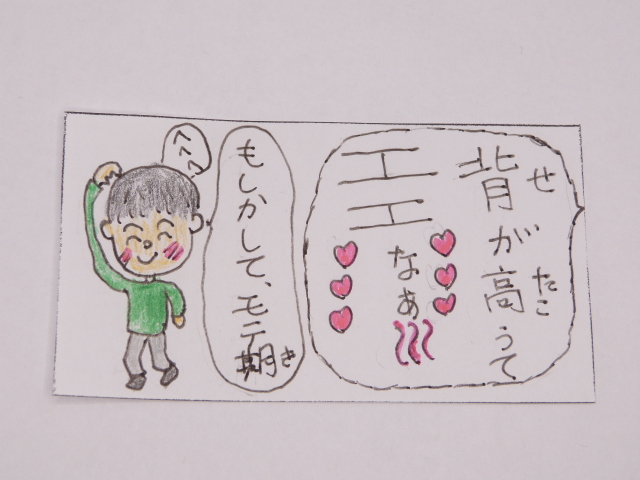 背が高うて
せ
たこ
エエ
なぁ
もしかして、モテ期
き
へへへ